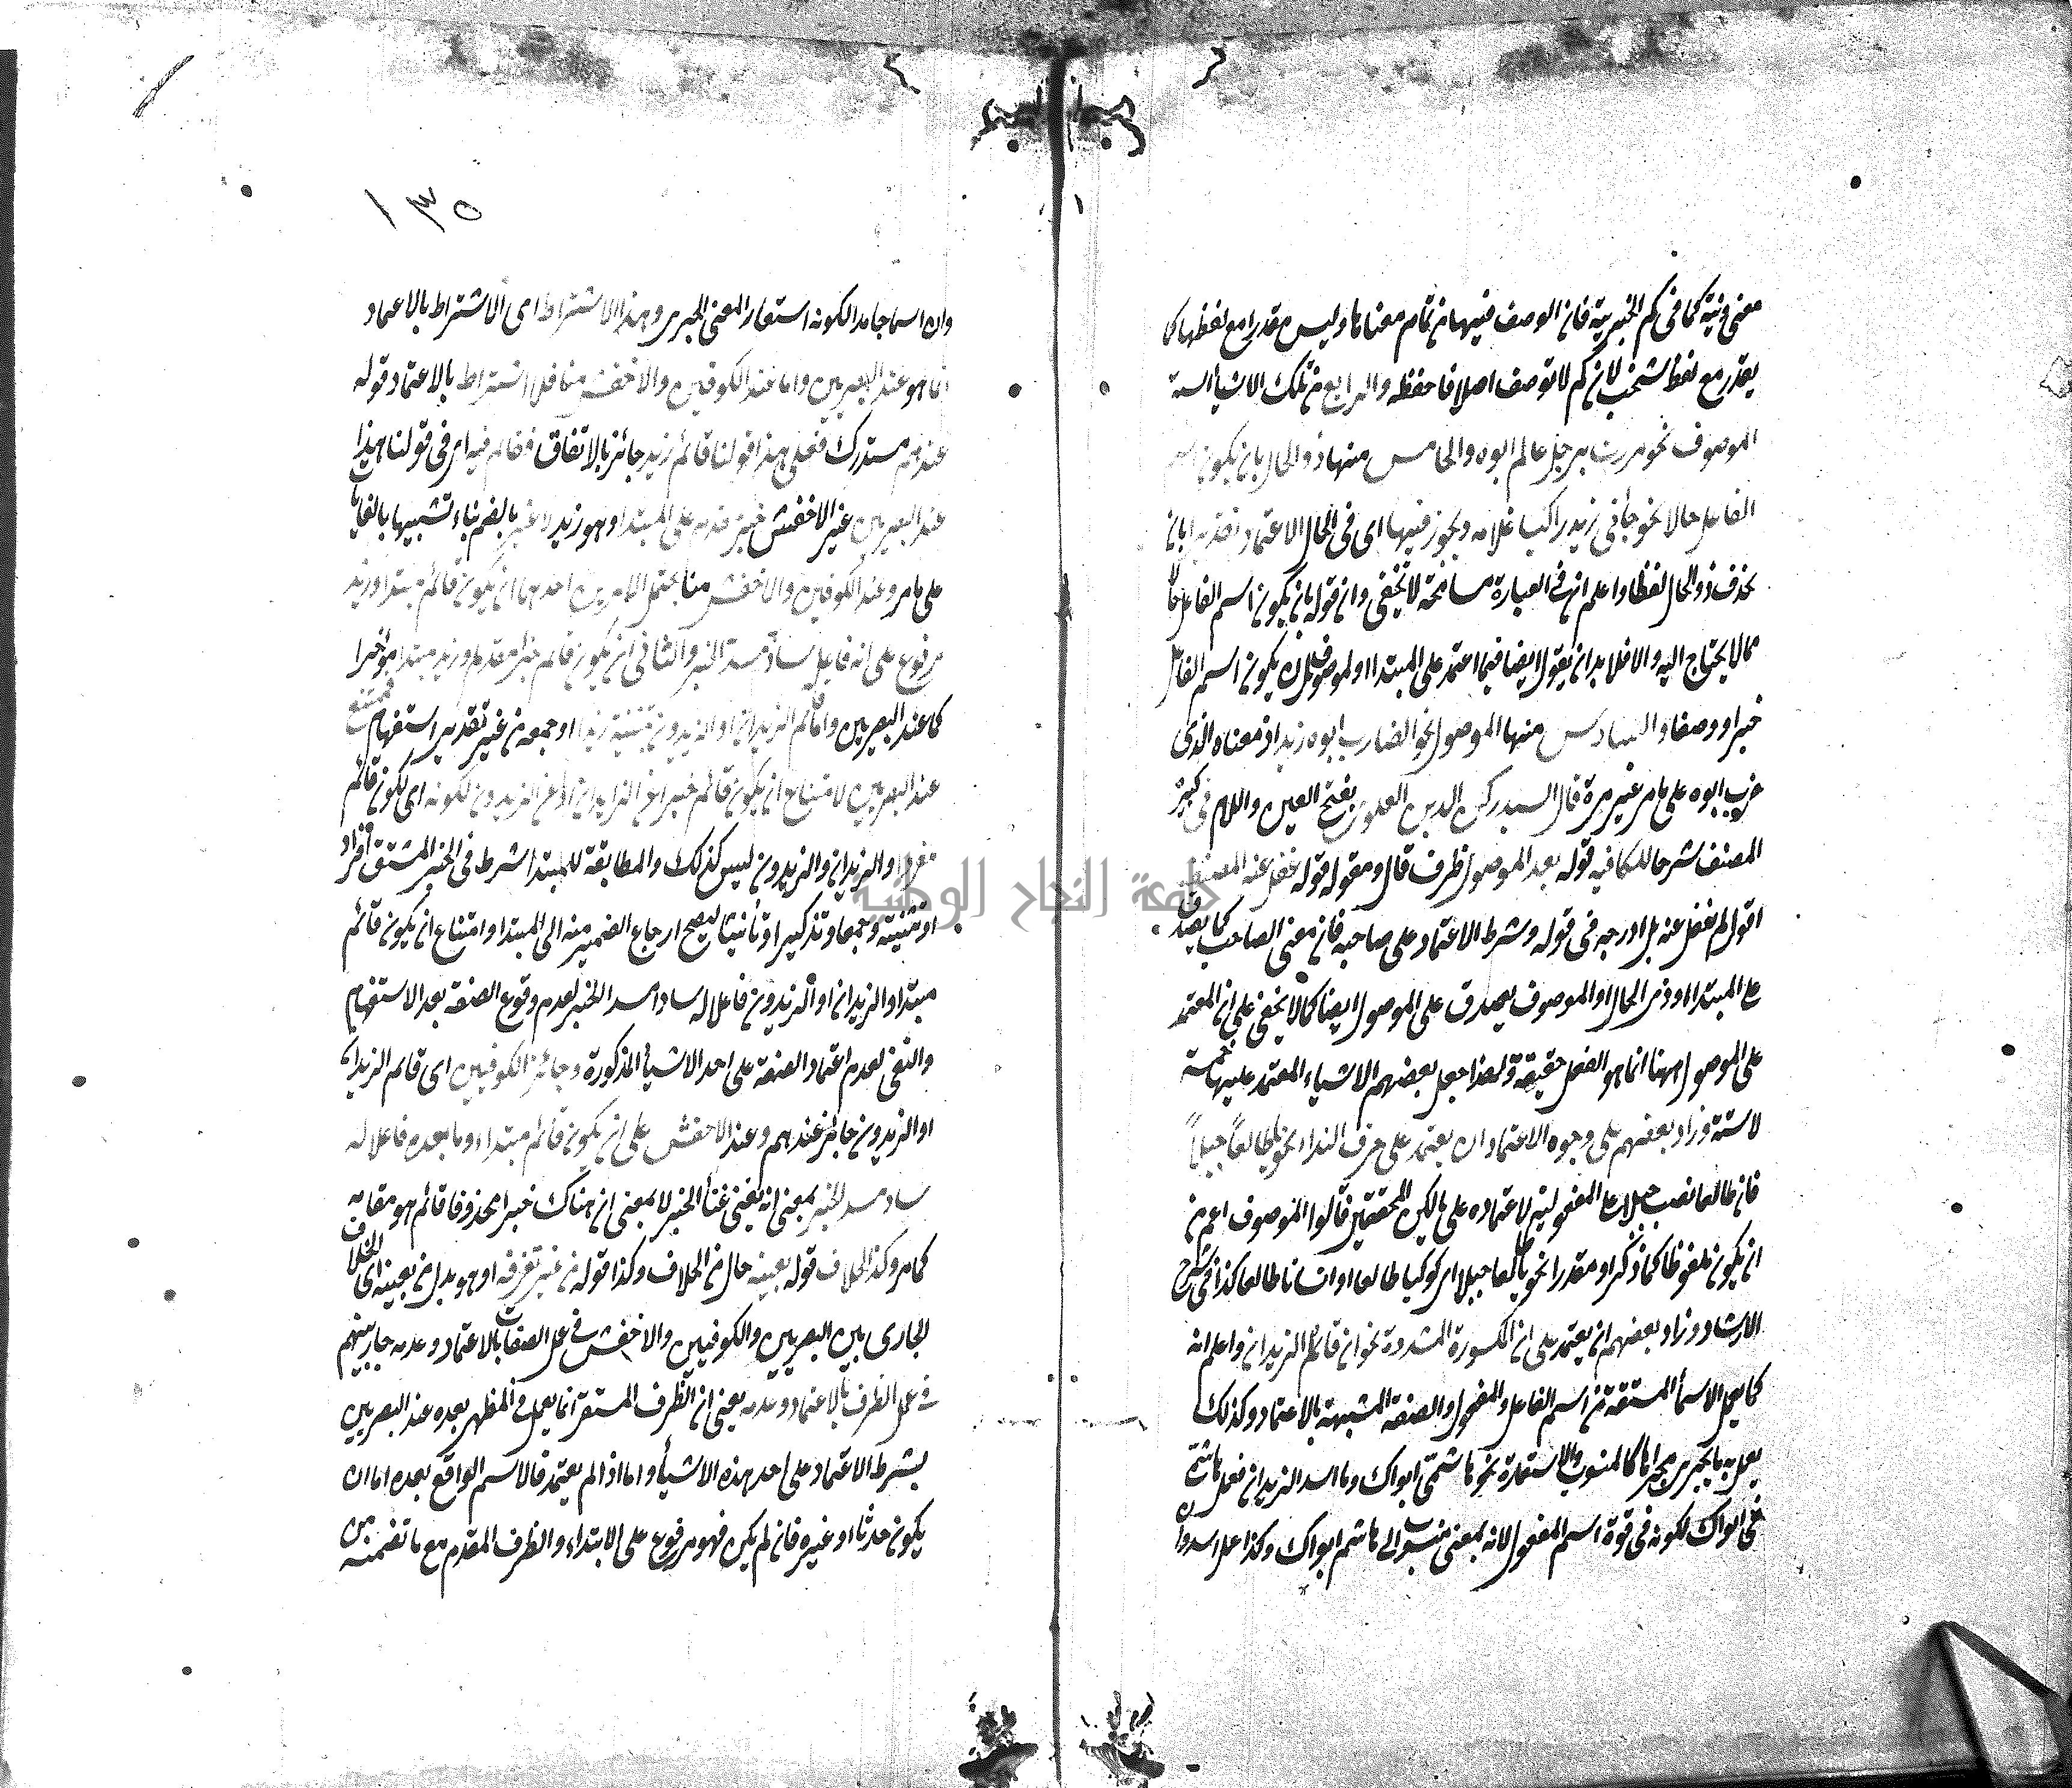 معنى ونية كما في كم الخبرية فان الوصف فيها من تمام معناها وليس مقدرا مع لفظها كما
يقدر مع لفظ شخب لان كم لا توصف اصلا فاحفظه والرابع من تلك الاشياء الستة
الموصوف نحو مررت برجل عالم ابوه والخامس منها ذو الحال بان يكون اسم
الفاعل حالا نحو جاءني زيد راكبا غلامه ويجوز فيها اى في الحال الاعتماد تقديرا بان
يحذف ذو الحال لفظا واعلم ان في العبارة مسامحة لا تخفى وان قوله بان يكون اسم الفاعل حالا
مما لا يحتاج اليه والا فلا بد ان يقول ايضا فيما اعتمد على المبتدا او الموصوف بان يكون اسم الفاعل
خبرا و وصفا والسادس منها الموصول نحو الضارب ابوه زيد اذ معناه الذى
ضرب ابوه على ما مر غير مرة قال السيد ركن الدين العلوى بفتح العين واللام في كبير
المصنف شرحا للكافيه قوله بعد الموصول ظرف قال ومقوله قوله غفل عنه المصنف
اقول لم يغفل عنه بل ادرجه في قوله وشرط الاعتماد على صاحبه فان معنى الصاحب كما يصدق
على المبتدا او ذى الحال او الموصوف يصدق على الموصول ايضا كما لا يخفى على ان المعتمد
على الموصول ههنا انما هو الفعل حقيقة ولهذا جعل بعضهم الاشياء المعتمد عليها خمسة
لا ستة وزاد بعضهم على وجوه الاعتماد ان يعتمد على حرف النداء نحو يا طالعا جبلاً
فان طالعا نصب جبلا على المفعولية لاعتماده على يا لكن المحققين قالوا الموصوف اعم من
ان يكون ملفوظا كما ذكر او مقدرا نحو يا طالعا جبلا اى كوكبا طالعا او انسانا طالعا كذا في شرح
الارشاد وزاد بعضهم ان يعتمد على ان المكسورة المشددة نحو ان قائم الزيدان واعلم انه
كما يعمل الاسماء المشتقة من اسم الفاعل والمفعول والصفة المشبهة بالاعتماد وكذلك
يعمل به ما يجرى مجراها كالمنسوب والاستعارة نحو هاشمى ابواك وما اسد الزيدان فعمل هاشمى
في ابواك لكونه في قوة اسم المفعول لانه بمعنى منسوب الى هاشم ابواك وكذا عمل اسد وان
١٣٥
وان اسما جامدا لكونه استعار المعنى الجرى وهذا الاشتراط اى الاشتراط بالاعتماد
انما هو عند البصريين واما عند الكوفيين والاخفش منا فلا اشتراط بالاعتماد قوله
عندهم مستدرك فعلى هذا قولنا قائم زيد جائز بالاتفاق فقائم فيه اى في قولنا هذا
عند البصريين غير الاخفش خبر قدم على المبتدا وهو زيد وغير بالضم بناء تشبيها بالغايات
على ما مر وعند الكوفيين والاخفش منا يحتمل الامرين احدهما ان يكون قائم مبتدا وزيد
مرفوع على انه فاعل ساد مسد الخبر والثاني ان يكون قائم خبرا مقدما وزيد مبتدا مؤخرا
كما عند البصريين واما قائم الزيدان او الزيدون بتثنية زيد او جمعه من غير تقدير استفهام فممتنع
عند البصريين لامتناع ان يكون قائم خبرا عن الزيدان او عن الزيدون لكونه اى لكون قائم
مفردا والزيدان والزيدون ليس كذلك والمطابقة للمبتدا شرط في الخبر المشتق افراد
او تثنية وجمعا وتذكيرا وتأنيثا ليصح ارجاع الضمير منه الى المبتدا وامتناع ان يكون قائم
مبتدا والزيدان او الزيدون فاعلا له سادا مسد الخبر لعدم وقوع الصفة بعد الاستفهام
والنفى لعدم اعتماد الصفة على احد الاشياء المذكورة وجائز الكوفيين اى قائم الزيدان
او الزيدون جائز عندهم وعند الاخفش على ان يكون قائم مبتداء وما بعده فاعلا له
ساد مسد الخبر بمعنى انه يغنى غناء الخبر لا بمعنى ان هناك خبرا محذوفا قائم هو مقامه
كما مر وكذا الخلاف قوله بعينه حال من الخلاف وكذا قوله من غير تفرقه او هو بدل من بعينه اى الخلاف
الجارى بين البصريين والكوفيين والاخفش في عمل الصفات بالاعتماد وعدمه جار بينهم
في عمل الظرف بالاعتماد وعدمه يعنى ان الظرف المستقر انما يعمل في المظهر بعده عند البصريين
بشرط الاعتماد على احد هذه الاشياء واما اذا لم يعتمد فالاسم الواقع بعده اما ان
يكون حدثا او غيره فان لم يكن فهو مرفوع على الابتداء والظرف المقدم مع ما تضمنه من
جامعة النجاح الوطنية